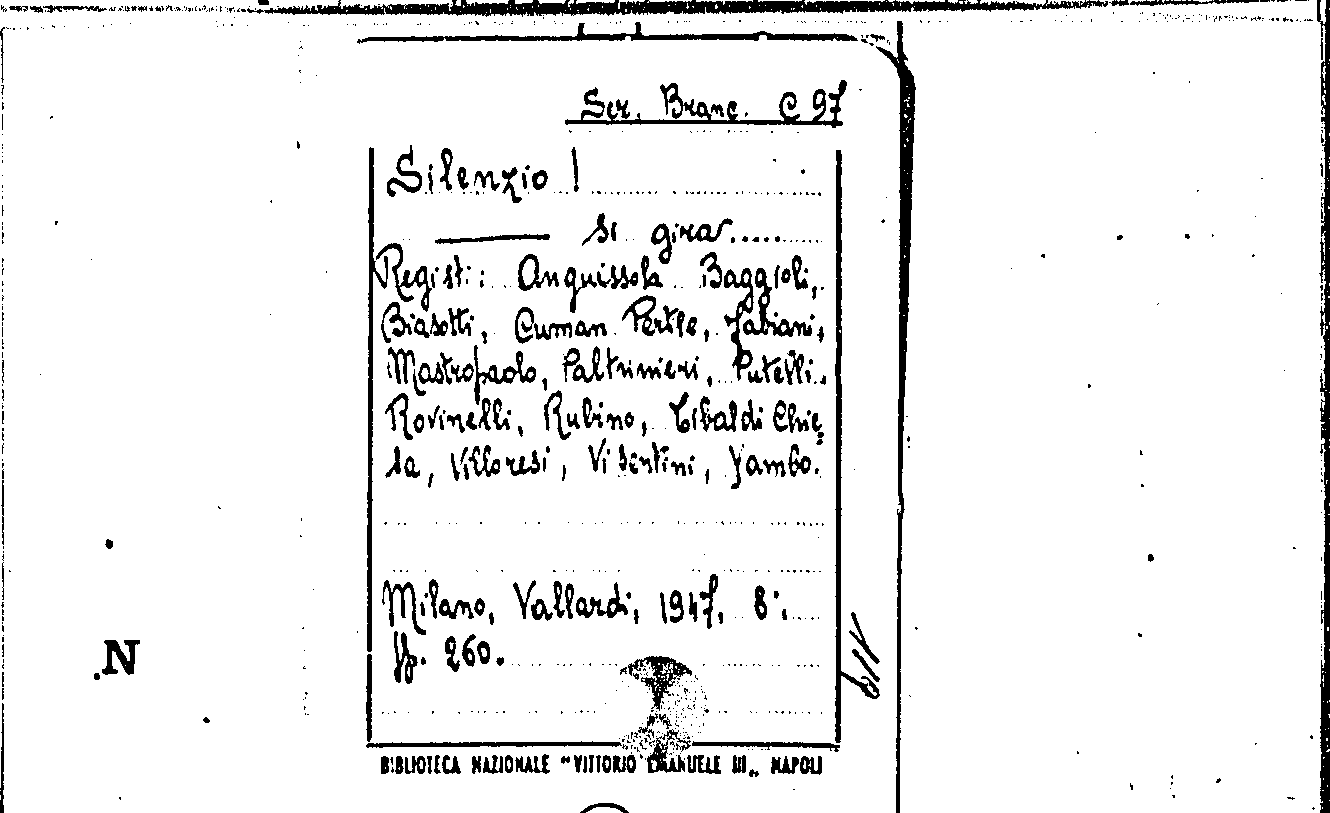 Ser. Branc. C 97
Silenzio !
——— si gira.....
Registi: Anguissola Baggioli,
Biasotti, Cuman Pertile, Fabiani,
Mastropaolo, Paltrinieri, Putelli,
Rovinelli, Rubino, Tibaldi Chie=
sa, Villoresi, Visentini, Yambo.
Milano, Vallardi, 1947, 8°,
pp. 260.
N
BIBLIOTECA NAZIONALE "VITTORIO EMANUELE III„ NAPOLI